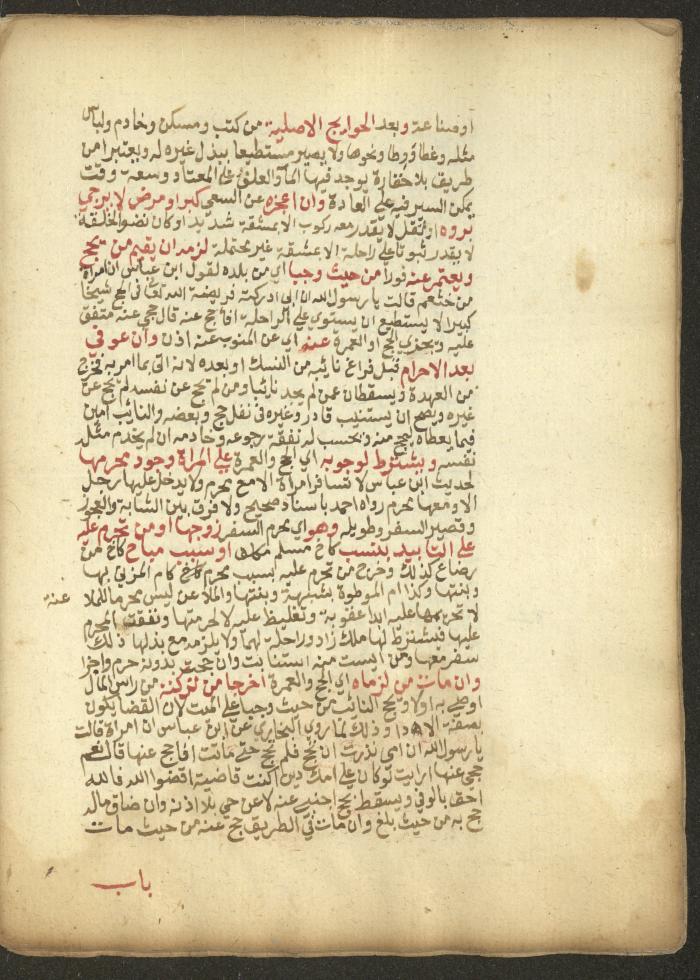 او صناعة وبعد الحوايج الاصلية من كتب ومسكن وخادم ولباس
مثله وغطا ووطا ونحوها ولا يصير مستطيعا ببذل غيره له ويعتبر امن
طريق بلا خفارة يوجد فيها الما والعلف على المعتاد وسعة وقت
يمكن السير فيه على العادة وان اعجزه عن السعي كبر او مرض لا يرجي
بروه او ثقل لا يقدر معه ركوب الا بمشقة شديدة او كان نضو الخلقة
لا يقدر ثبوتا على راحلة الا بمشقة غير محتملة لزمه ان يقيم من يحج
ويعتمر عنه فورا من حيث وجبا اي من بلده لقول ابن عباس ان امراة
من خثعم قالت يا رسول الله ان ابي ادركته فريضة الله تعالى في الحج شيخا
كبيرا لا يستطيع ان يستوي على الراحلة افاحج عنه قال حجي عنه متفق
عليه ويجزي الحج او العمرة عنه اي عن المنوب عنه اذن وان عوفي
بعد الاحرام قبل فراغ نايبه من النسك او بعده لانه اتى بما امر به فخرج
من العهدة ويسقطان عمن لم يجد نايبا ومن لم يحج عن نفسه لم يحج عن
غيره ويصح ان يستنيب قادر وغيره في نفل حج وبعضه والنايب امين
فيما يعطاه ليحج منه ويحسب له نفقة رجوعه وخادمه ان لم يخدم مثله
نفسه ويشترط لوجوبه اي الحج والعمرة على المراة وجود محرمها
لحديث ابن عباس لا تسافر امراة الا مع محرم ولا يدخل عليها رجل
الا ومعها محرم رواه احمد باسناد صحيح ولا فرق بين الشابة والعجوز
وقصير السفر وطويله وهو اي محرم السفر زوجها او من تحرم عليه
على التابيد بنسب كاخ مسلم مكلف او سبب مباح كاخ من
رضاع كذلك وخرج من تحرم عليه بسبب محرم كام المزني بها
وبنتها وكذا ام الموطوة بشبهة وبنتها والملاعن ليس محرما للملا
عنة
لا تحريمها عليه ابدا عقوبة وتغليظ عليه لا لحرمتها ونفقة المحرم
عليها فيشترط لها ملك زاد وراحلة لهما ولا يلزمه مع بذلها ذلك
سفر معها ومن ايست منه استنابت وان حجت بدونه حرم واجزا
وان مات من لزماه اي الحج والعمرة اخرجا من تركته من راس المال
اوصى به اولا ويحج النايب من حيث وجبا على الميت لان القضا يكون
بصفة الادا وذلك لما روي البخاري عن ابن عباس ان امراة قالت
يا رسول الله ان امي نذرت ان تحج فلم تحج حتى ماتت افاحج عنها قال نعم
حجي عنها ارايت لو كان على امك دين اكنت قاضيته اقضوا الله فالله
احق بالوفي ويسقط بحج اجنبي عنه لا عن حي بلا اذنه وان ضاق ماله
حج به من حيث بلغ وان مات في الطريق حج عنه من حيث مات
باب